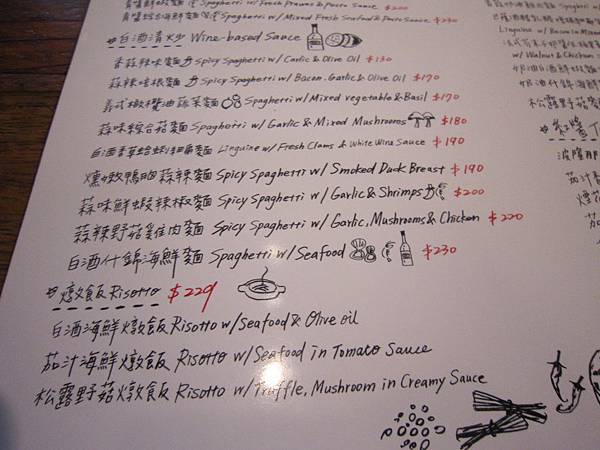 Spaghetti w/ Fresh Prawns & Pesto Sauce $200
Spaghetti w/ Mixed Fresh Seafood & Pesto Sauce $230
白酒清炒 Wine-based Sauce
香蒜辣味麵 Spicy Spaghetti w/ Garlic & Olive Oil $130
蒜辣培根麵 Spicy Spaghetti w/ Bacon, Garlic & Olive Oil $170
義式橄欖油蔬菜麵 Spaghetti w/ Mixed vegetable & Basil $170
蒜味綜合菇麵 Spaghetti w/ Garlic & Mixed Mushrooms $180
白酒香草蛤蜊細扁麵 Linguine w/ Fresh Clams & White Wine Sauce $190
燻嫩鴨胸蒜辣麵 Spicy Spaghetti w/ Smoked Duck Breast $190
蒜味鮮蝦辣椒麵 Spicy Spaghetti w/ Garlic & Shrimps $200
蒜辣野菇雞肉麵 Spicy Spaghetti w/ Garlic, Mushrooms & Chicken $220
白酒什錦海鮮麵 Spaghetti w/ Seafood $230
燉飯 Risotto $220
白酒海鮮燉飯 Risotto w/ Seafood & Olive oil
茄汁海鮮燉飯 Risotto w/ Seafood in Tomato Sauce
松露野菇燉飯 Risotto w/ Truffle, Mushroom in Creamy Sauce
Linguine w/ Bacon
w/ Walnut & Chicken
松露野菇
紅醬
茄汁